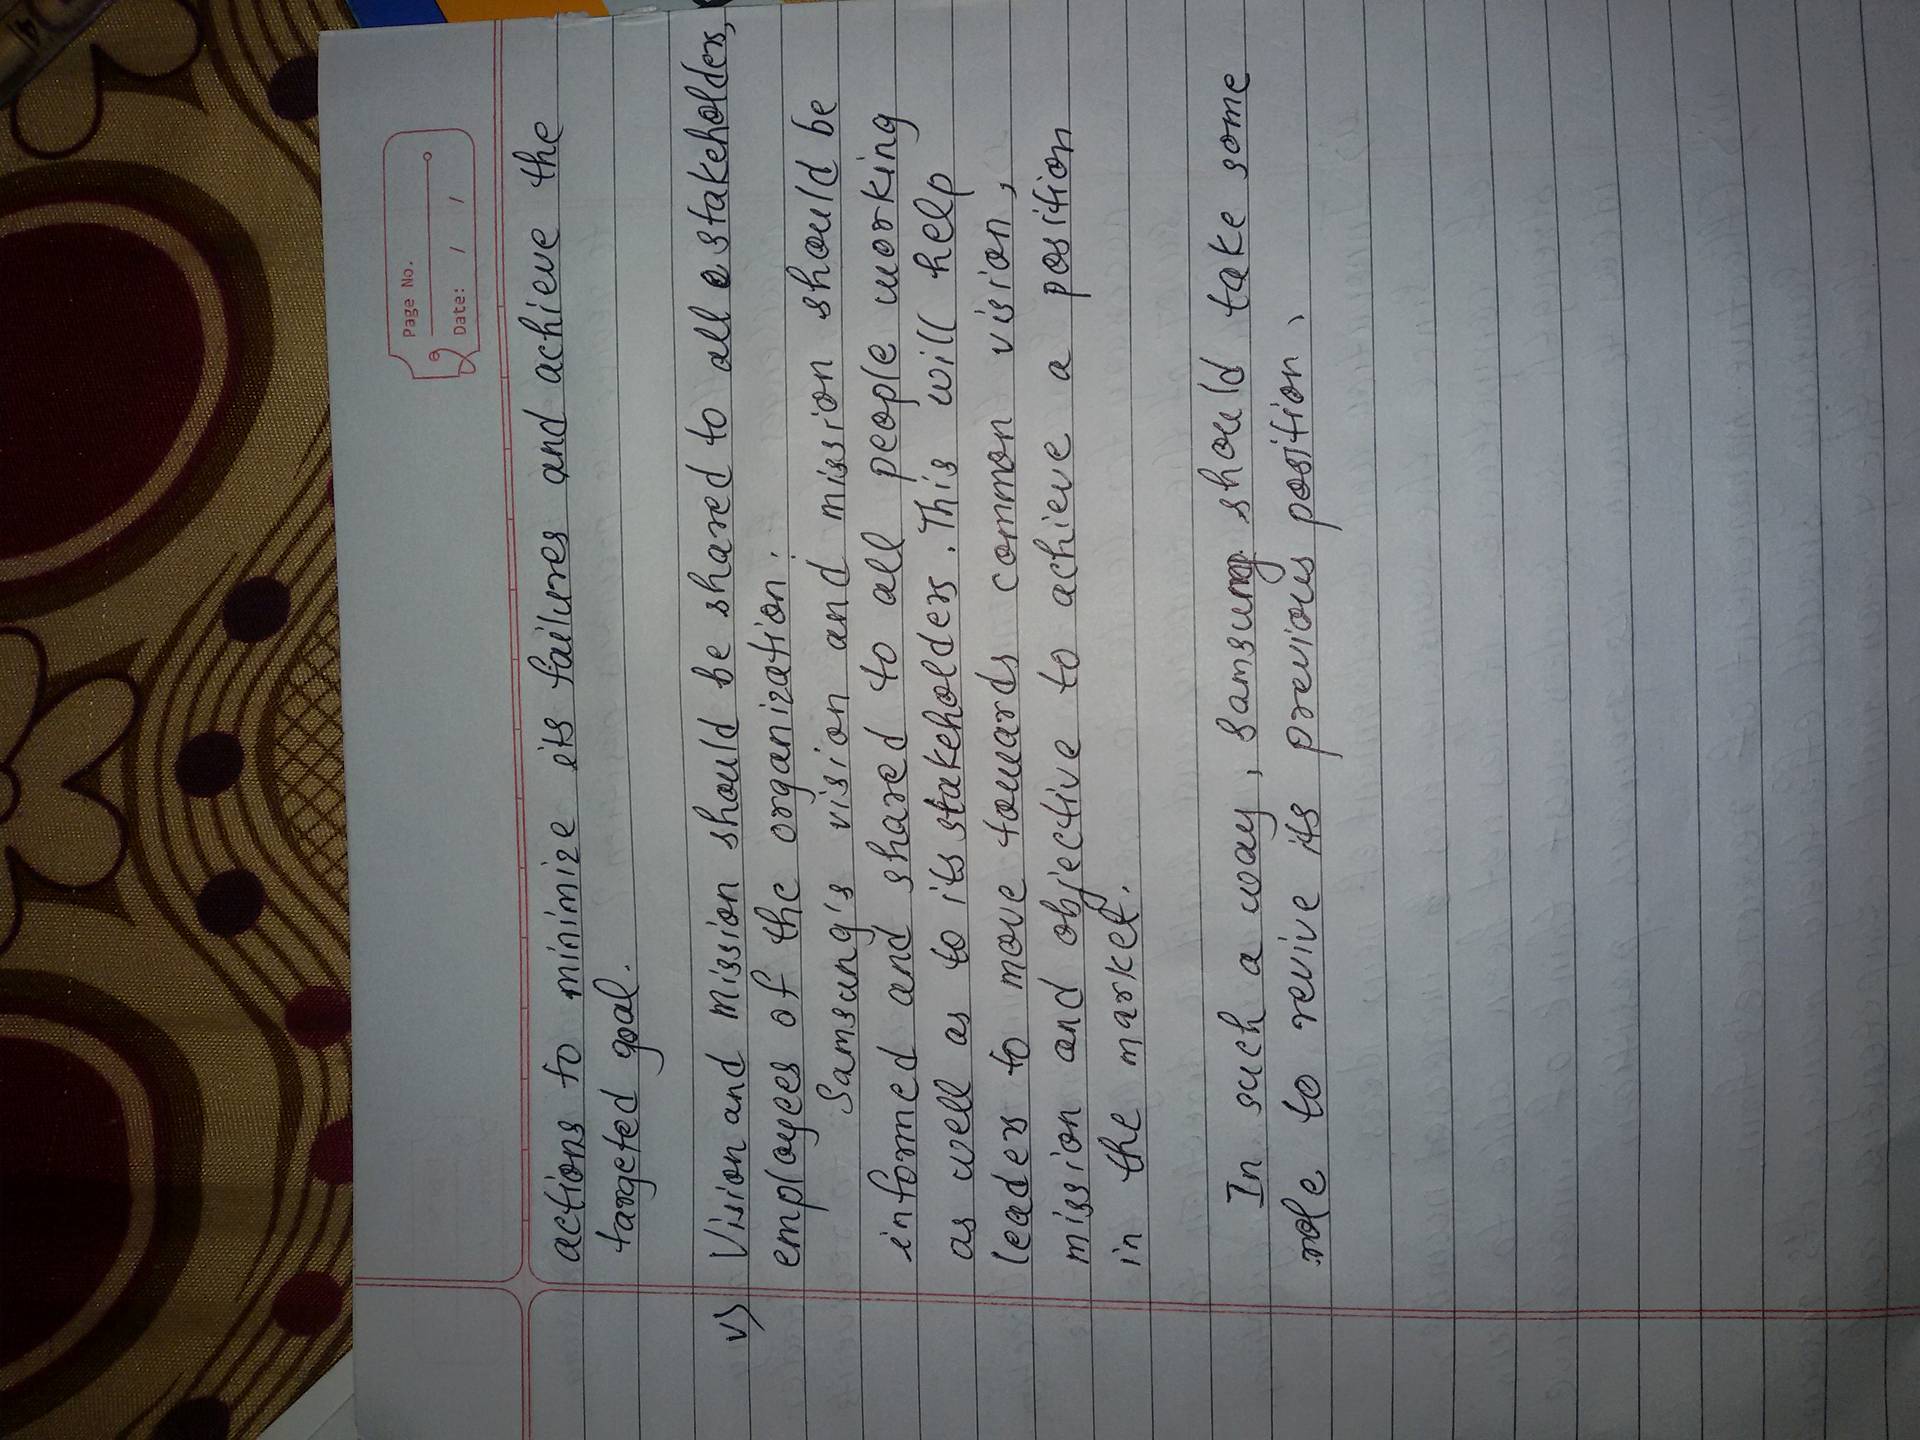 Page No.
Date: / /
actions to minimize its failures and achieve the
targeted goal.
v) Vision and Mission should be shared to all stakeholders,
employees of the organization:
Samsung's vision and mission should be
informed and shared to all people working
as well as to its stakeholders. This will help
leaders to move towards common vision,
mission and objective to achieve a position
in the market.
In such a way, Samsung should take some
role to revive its previous position.